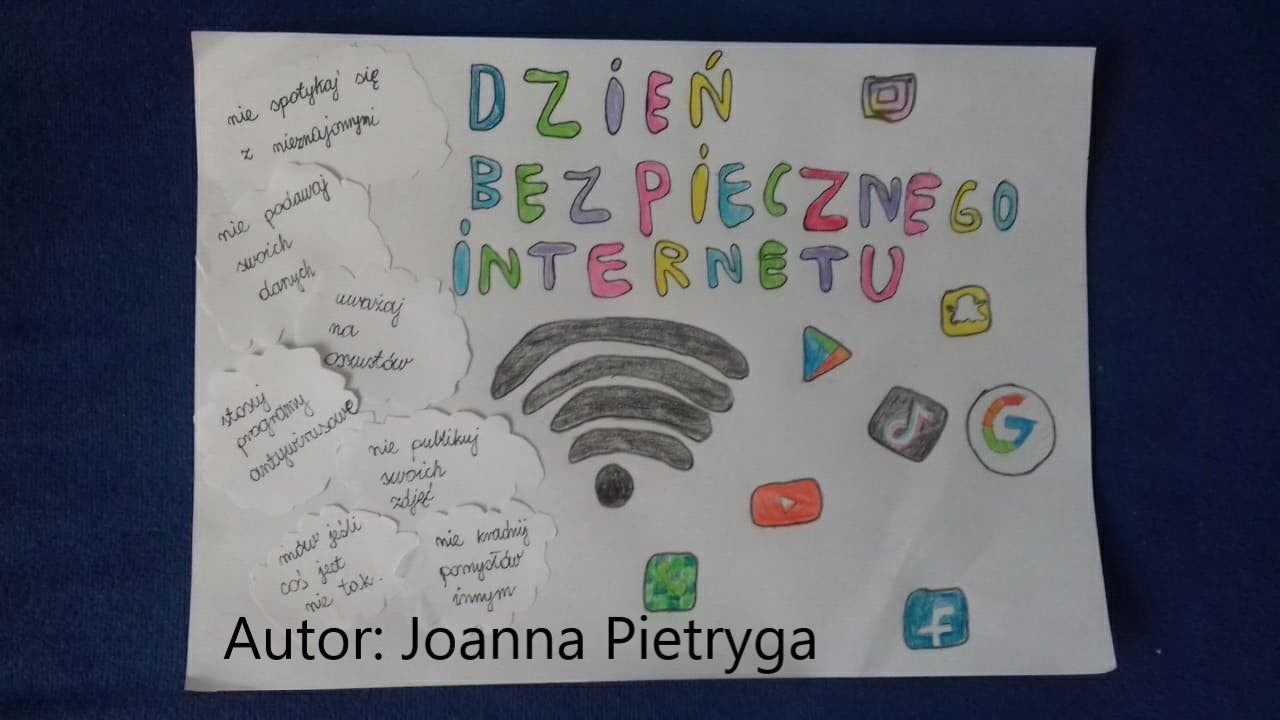 DZIEŃ
BEZPIECZNEGO
INTERNETU
nie spotykaj się
z nieznajomymi
nie podawaj
swoich
danych
uważaj
na
oszustów
stosuj
programy
antywirusowe
nie publikuj
swoich
zdjęć
mów jeśli
coś jest
nie tak.
nie kradnij
pomysłów
innym
Autor: Joanna Pietryga